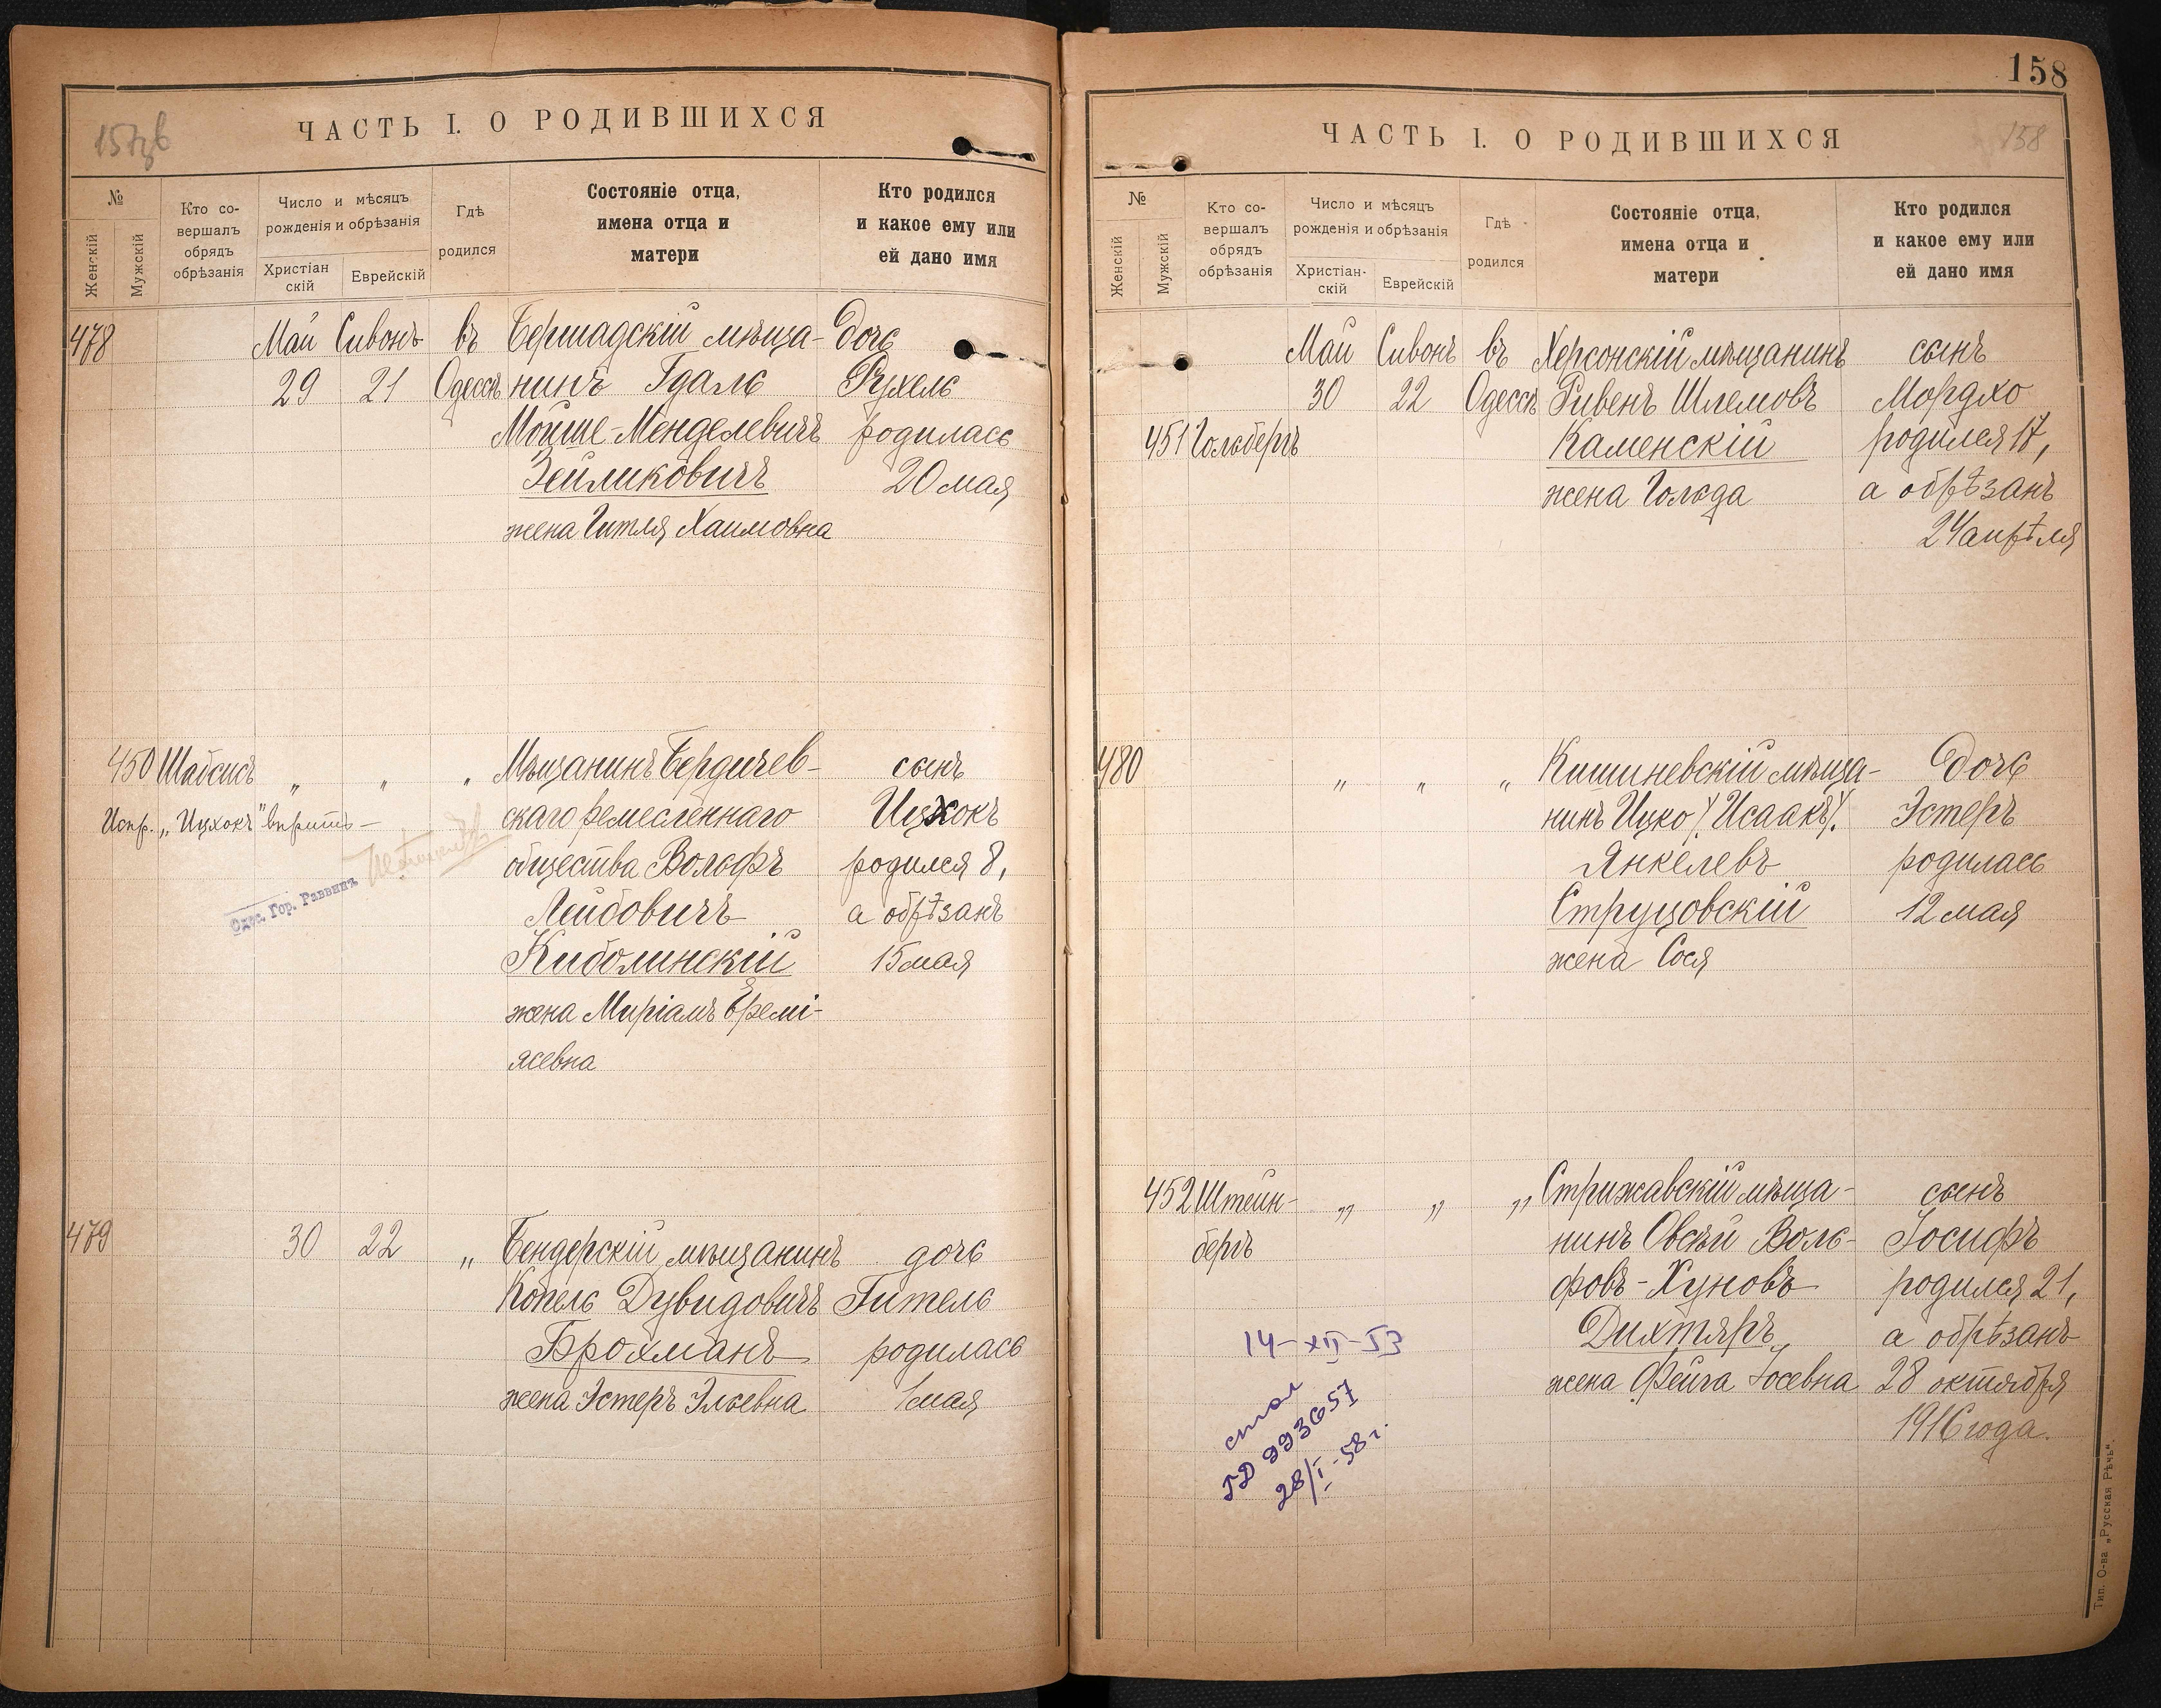 157об
ЧАСТЬ I. О РОДИВШИХСЯ
№
Женскій
Мужскій
Кто со-
вершалъ
обрядъ
обрѣзанія
Число и мѣсяцъ
рожденія и обрѣзанія
Христіан
скій
Еврейскій
Гдѣ
родился
Состояніе отца,
имена отца и
матери
Кто родился
и какое ему или
ей дано имя
478 Май Сивонъ въ Бершадскій мѣща- дочь
29 21 Одессѣ нинъ Гдаль Рухель
Мойше-Менделевичъ родилась
Зейликовичъ 20 мая
жена Гитля Хаимовна
450 Шабсисъ „ „ „ Мѣщанинъ Бердичев- сынъ
Испр. „Ицхокъ" вѣрить- скаго ремесленнаго Ицхокъ
общества Вольфъ родился 8,
Одес. Гор. Раввинъ
Лейбовичъ а обрѣзанъ
Киболинскій 15 мая
жена Миріамъ Еремі-
ясевна
479 30 22 „ Бендерскій мѣщанинъ дочь
Копель Дувидовичъ Гитель
Брохманъ родилась
жена Эстеръ Эльевна 1 мая
158
158
ЧАСТЬ I. О РОДИВШИХСЯ
№
Женскій
Мужскій
Кто со-
вершалъ
обрядъ
обрѣзанія
Число и мѣсяцъ
рожденія и обрѣзанія
Христіан-
скій
Еврейскій
Гдѣ
родился
Состояніе отца,
имена отца и
матери
Кто родился
и какое ему или
ей дано имя
Май Сивонъ въ Херсонскій мѣщанинъ сынъ
30 22 Одессѣ Ривенъ Шлемовъ Мордхо
451 Гольбергъ Каменскій родился 17,
жена Гольда а обрѣзанъ
24 апрѣля
480 „ „ „ Кишиневскій мѣща- дочь
нинъ Ицко /Исаакъ/. Эстеръ
Янкелевъ родилась
Струцовскій 12 мая
жена Сося
452 Штейн- „ „ „ Стрижавскій мѣща- сынъ
бергъ нинъ Овсѣй Воль- Іосифъ
фовъ-Хуновъ родился 21,
14-XII-53 Дихтяръ а обрѣзанъ
жена Фейга Іосевна 28 октября
1916 года.
ГД 993657
28/I-58 г.
Тип. О-ва „Русская Рѣчь".